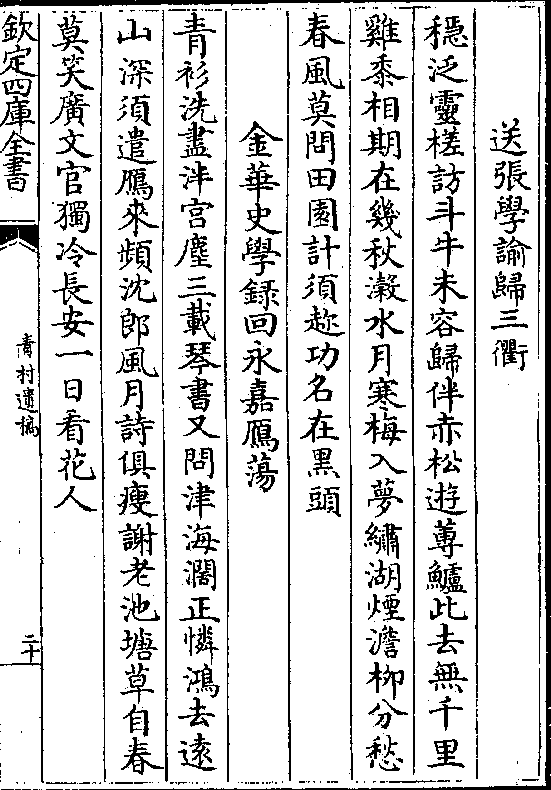 送張學諭歸三衢
穩泛靈槎訪斗牛未容歸伴赤松遊蓴鱸此去無千里
雞黍相期在幾秋瀫水月寒梅入夢繡湖煙澹柳分愁
春風莫問田園計須趂功名在黒頭
金華史學録回永嘉鴈蕩
青衫洗盡泮宫塵三載琴書又問津海濶正憐鴻去逺
山深須遣鴈來頻沈郎風月詩俱瘦謝老池塘草自春
莫笑廣文官獨冷長安一日看花人
欽定四庫全書
青村遺稿
二十